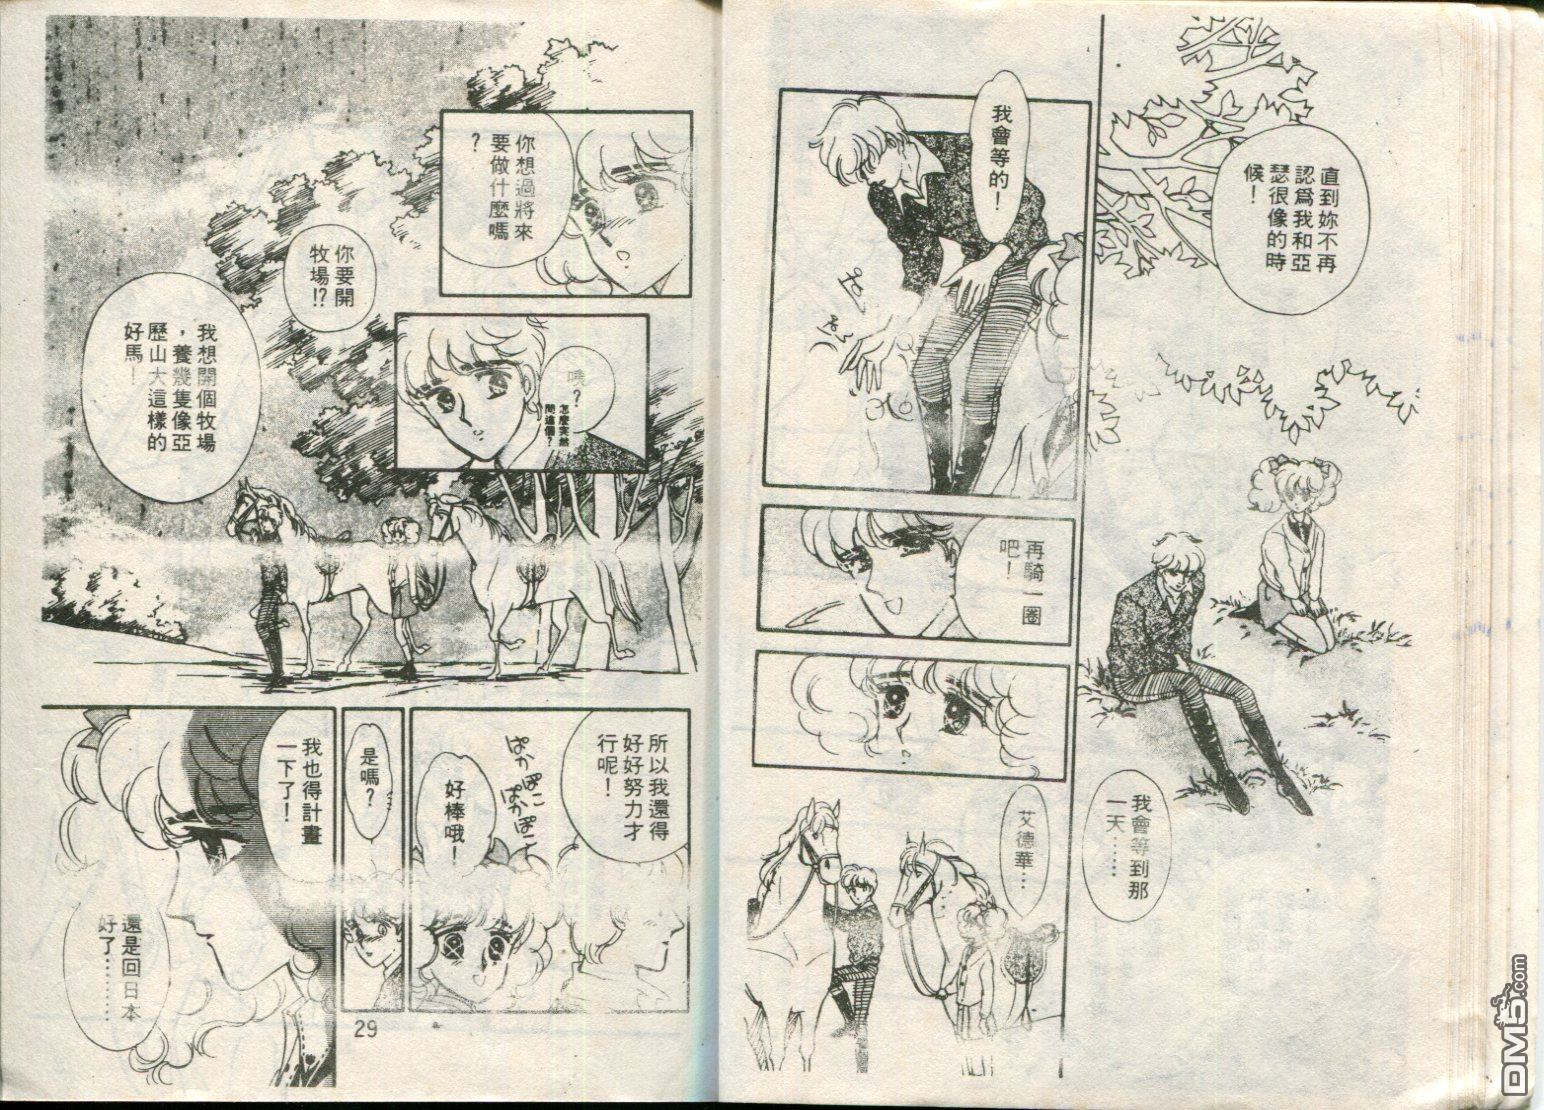 直到妳不再
認爲我和亞
瑟很像的時
候！
我會等的！
我會等到那
一天……
再騎一圈
吧！
艾德華…
你想過將來
要做什麼嗎
？
哦？
怎麼突然
問這個？
你要開
牧場!?
我想開個牧場
，養幾隻像亞
歷山大這樣的
好馬！
所以我還得
好好努力才
行呢！
ぱかぽこ
ぱかぽこ
好棒哦！
是嗎？
我也得計畫
一下了！
還是回日本
好了…………
29
DM5.com